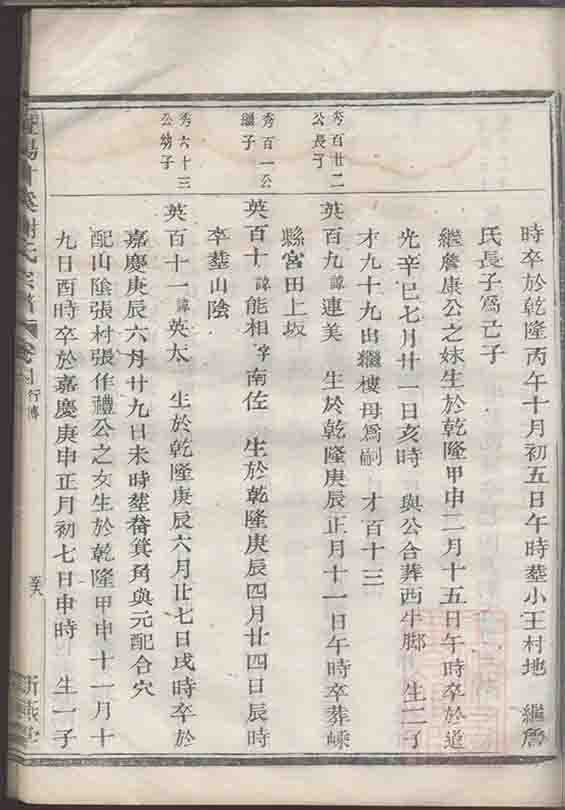 時卒於乾隆丙午十月初五日午時塟小王村地 繼詹
氏長子爲己子
繼詹康公之妹生於乾隆甲申二月十五日午時卒於道
光辛巳七月廿一日亥時 與公合葬西牛脚 生二子
才九十九出繼樓母爲嗣 才百十三
秀百廿二
公長子
英百九諱連美 生於乾隆庚辰正月十一日午時卒葬嵊
縣宮田上坂
秀百一公
繼子
英百十諱能相字南佐 生於乾隆庚辰四月廿四日辰時
卒塟山陰
秀六十三
公幼子
英百十一諱英太 生於乾隆庚辰六月廿七日戌時卒於
嘉慶庚辰六月廿九日未時塟箕角與元配合穴
配山陰張村張作禮公之女生於乾隆甲申十一月十
九日酉時卒於嘉慶庚申正月初七日申時 生一子
暨陽 氏宗譜 卷 行傳